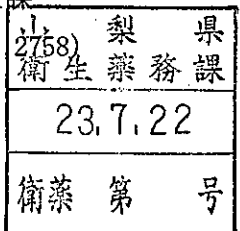 課
山梨県
2758)
衛生薬務課
23.7.22
衛薬第　号